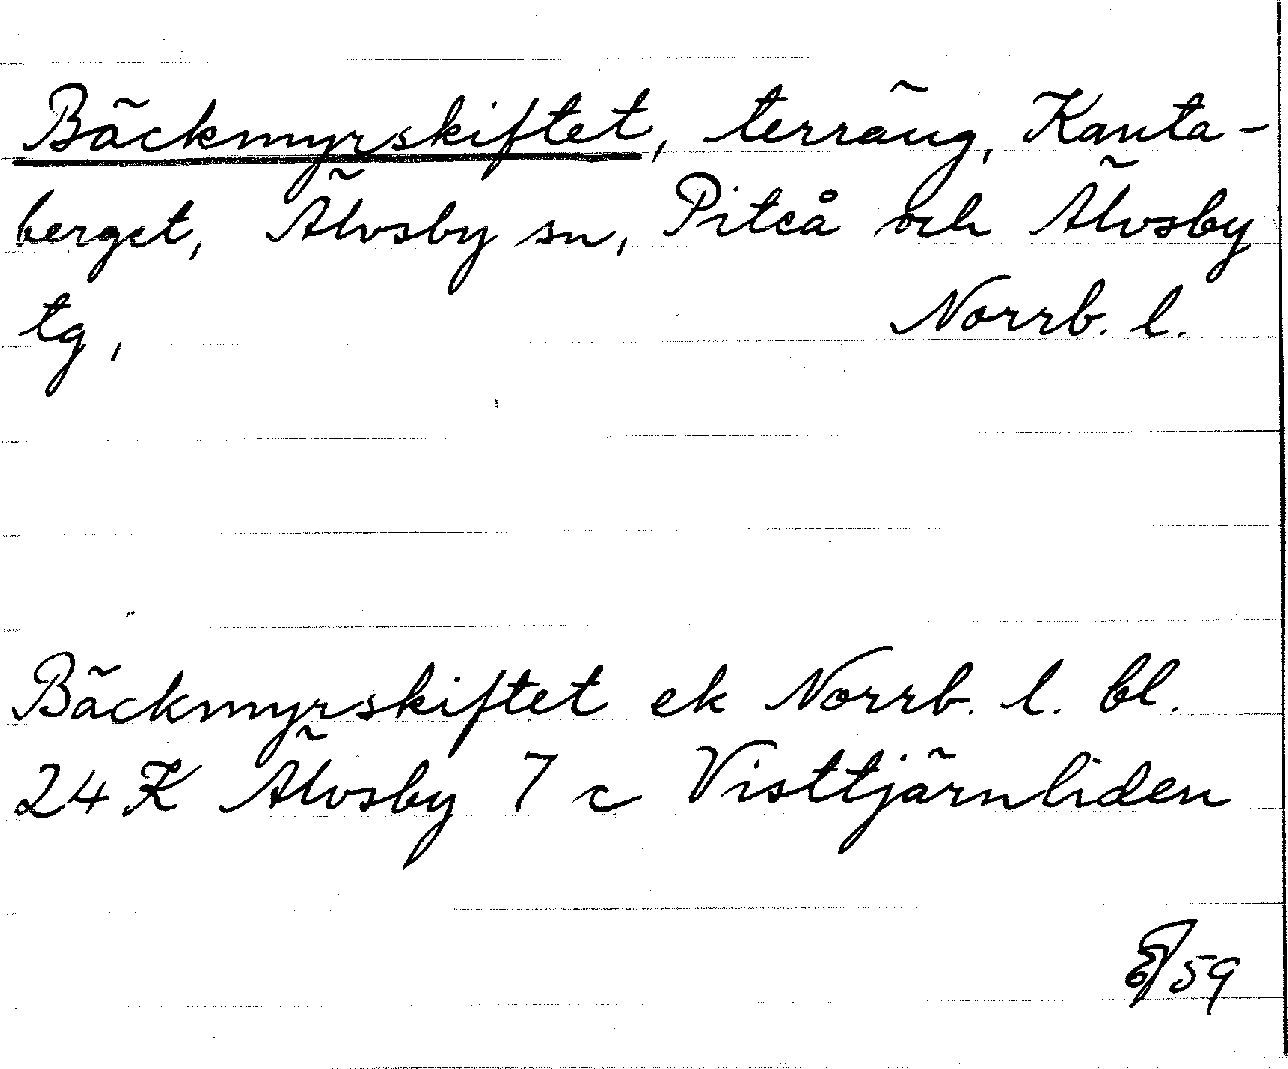 Bäckmyrskiftet, terräng, Kanta-
berget, Älvsby sn, Piteå och Älvsby
tg, Norrb. l.
Bäckmyrskiftet ek Norrb. l. bl.
24 K Älvsby 7 c Visttjärnliden
59